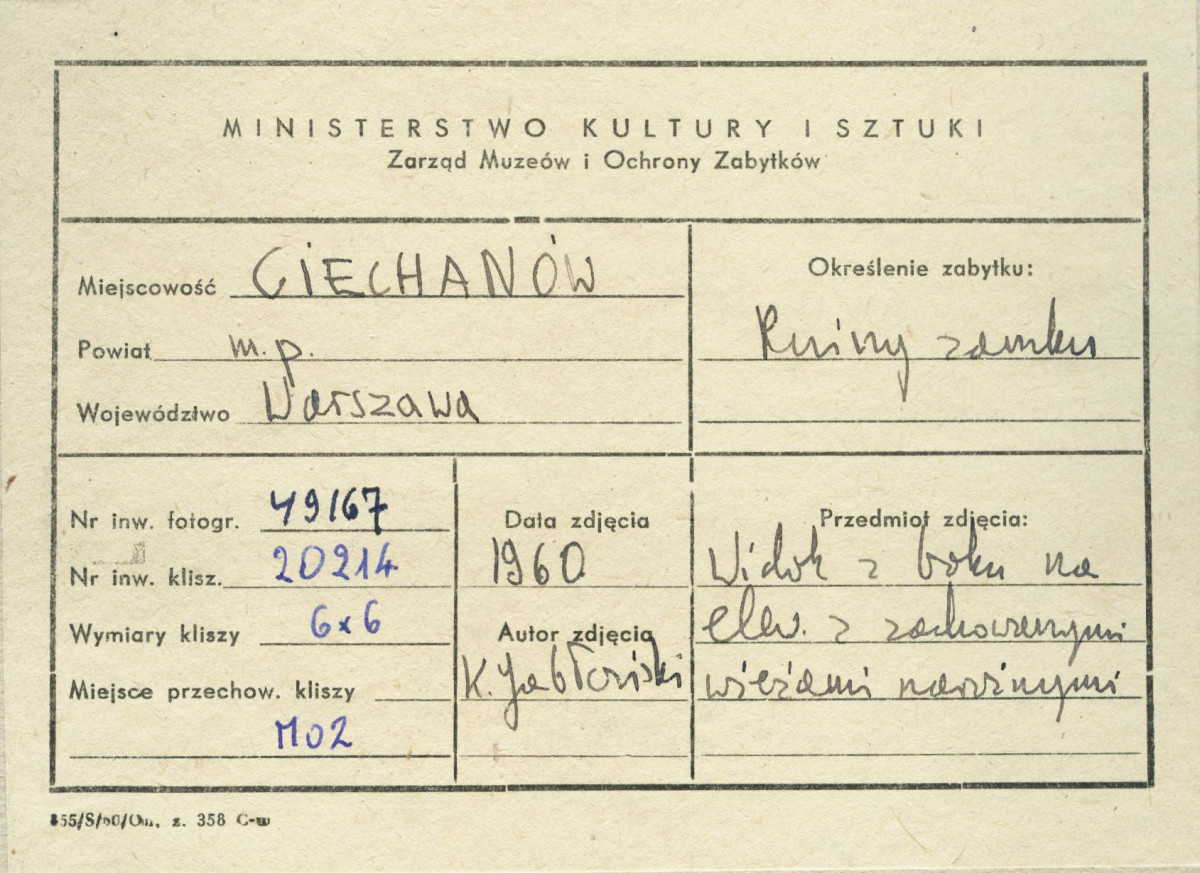 MINISTERSTWO KULTURY I SZTUKI
Zarząd Muzeów i Ochrony Zabytków
Miejscowość CIECHANÓW
Powiat m.p.
Województwo Warszawa
Określenie zabytku:
Ruiny zamku
Nr inw. fotogr. 49167
Nr inw. klisz. 20214
Wymiary kliszy 6x6
Miejsce przechow. kliszy
MOZ
Data zdjęcia
1960
Autor zdjęcia
K. Jabłoński
Przedmiot zdjęcia:
Widok z boku na
elew. z zachowanymi
wieżami narożnymi
z. 358 C-w